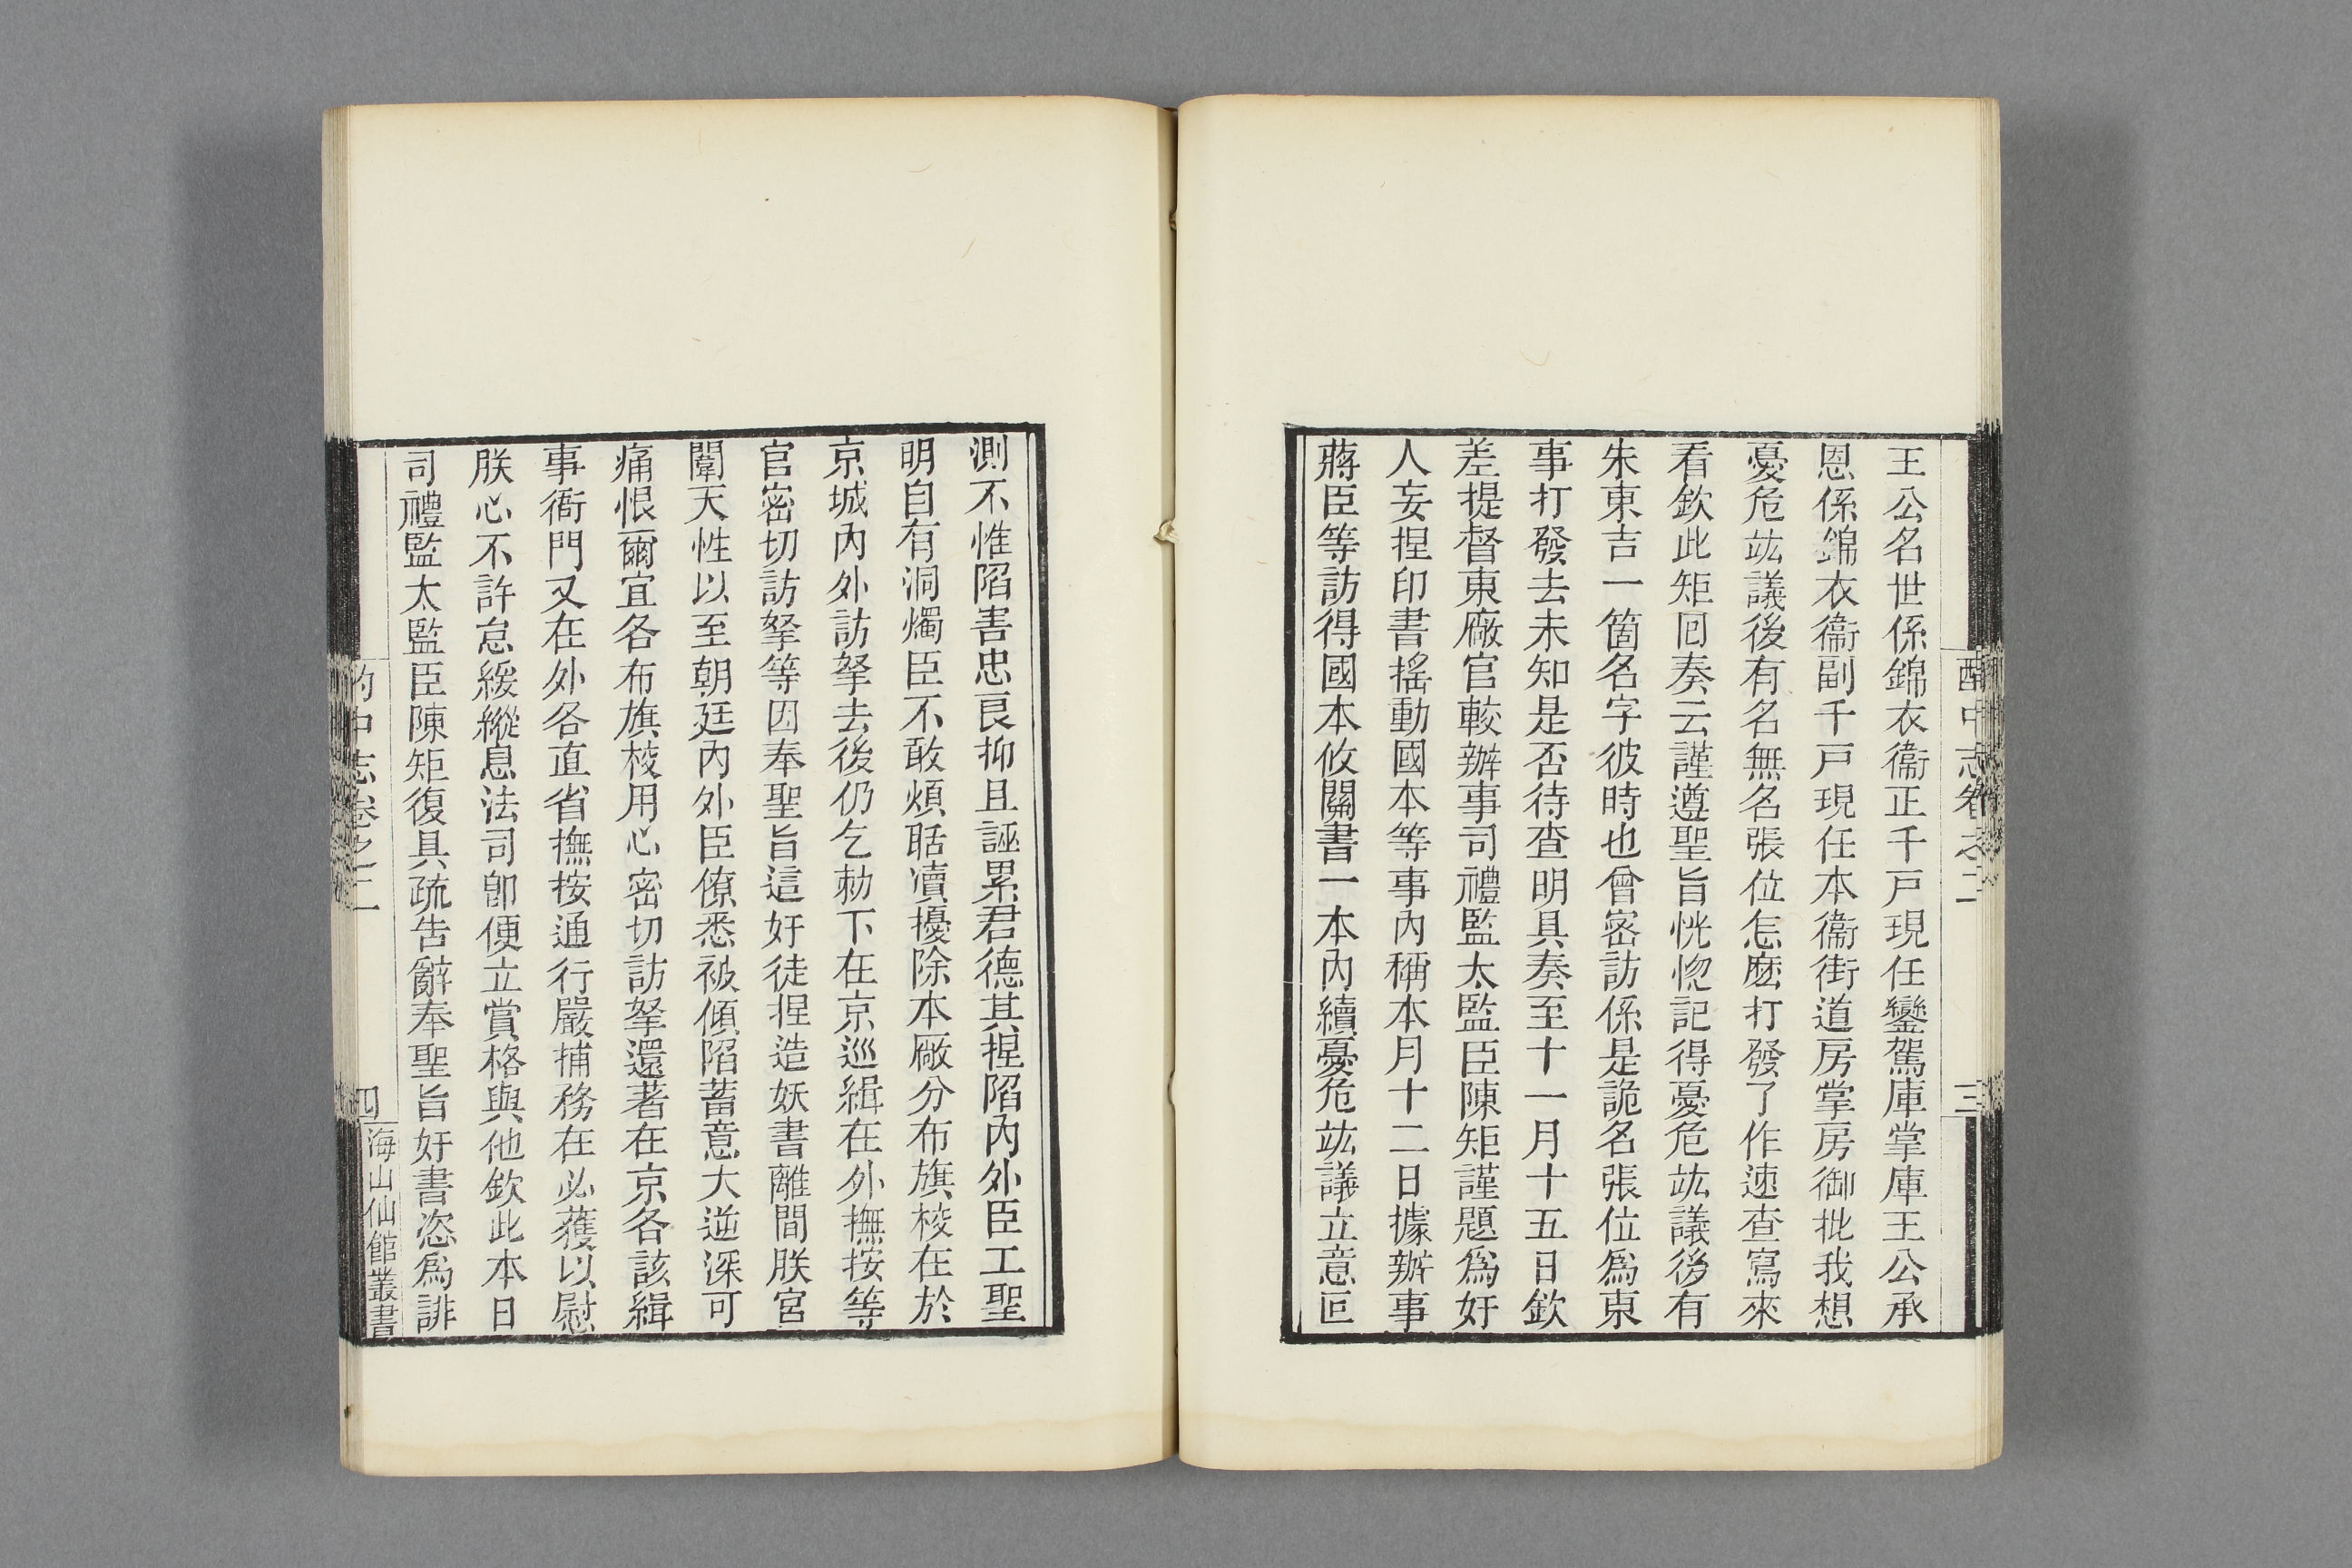 酌中志卷之二
三
王公名世係錦衣衞正千戸現任鑾駕庫掌庫王公承
恩係錦衣衞副千戸現任本衞街道房掌房御批我想
憂危竑議後有名無名張位怎麽打發了作速查寫來
看欽此矩回奏云謹遵聖旨恍惚記得憂危竑議後有
朱東吉一箇名字彼時也曾密訪係是詭名張位爲東
事打發去未知是否待查明具奏至十一月十五日欽
差提督東廠官較辦事司禮監太監臣陳矩謹題爲奸
人妄捏印書搖動國本等事內稱本月十二日據辦事
蔣臣等訪得國本攸關書一本內續憂危竑議立意叵
測不惟陷害忠良抑且誣累君德其捏陷內外臣工聖
明自有洞燭臣不敢煩聒凟擾除本廠分布旗校在於
京城內外訪拏去後仍乞勅下在京巡緝在外撫按等
官密切訪拏等因奉聖旨這奸徒捏造妖書離間朕宮
闈天性以至朝廷內外臣僚悉被傾陷蓄意大逆深可
痛恨爾宜各布旗校用心密切訪拏還著在京各該緝
事衙門又在外各直省撫按通行嚴捕務在必獲以慰
朕心不許怠緩縱息法司卽便立賞格與他欽此本日
司禮監太監臣陳矩復具疏吿辭奉聖旨奸書恣爲誹
酌中志卷之二
四
海山仙館叢書